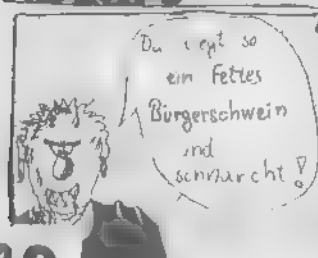 Da liegt so
ein Fettes
Bürgerschwein
und
schnarcht!